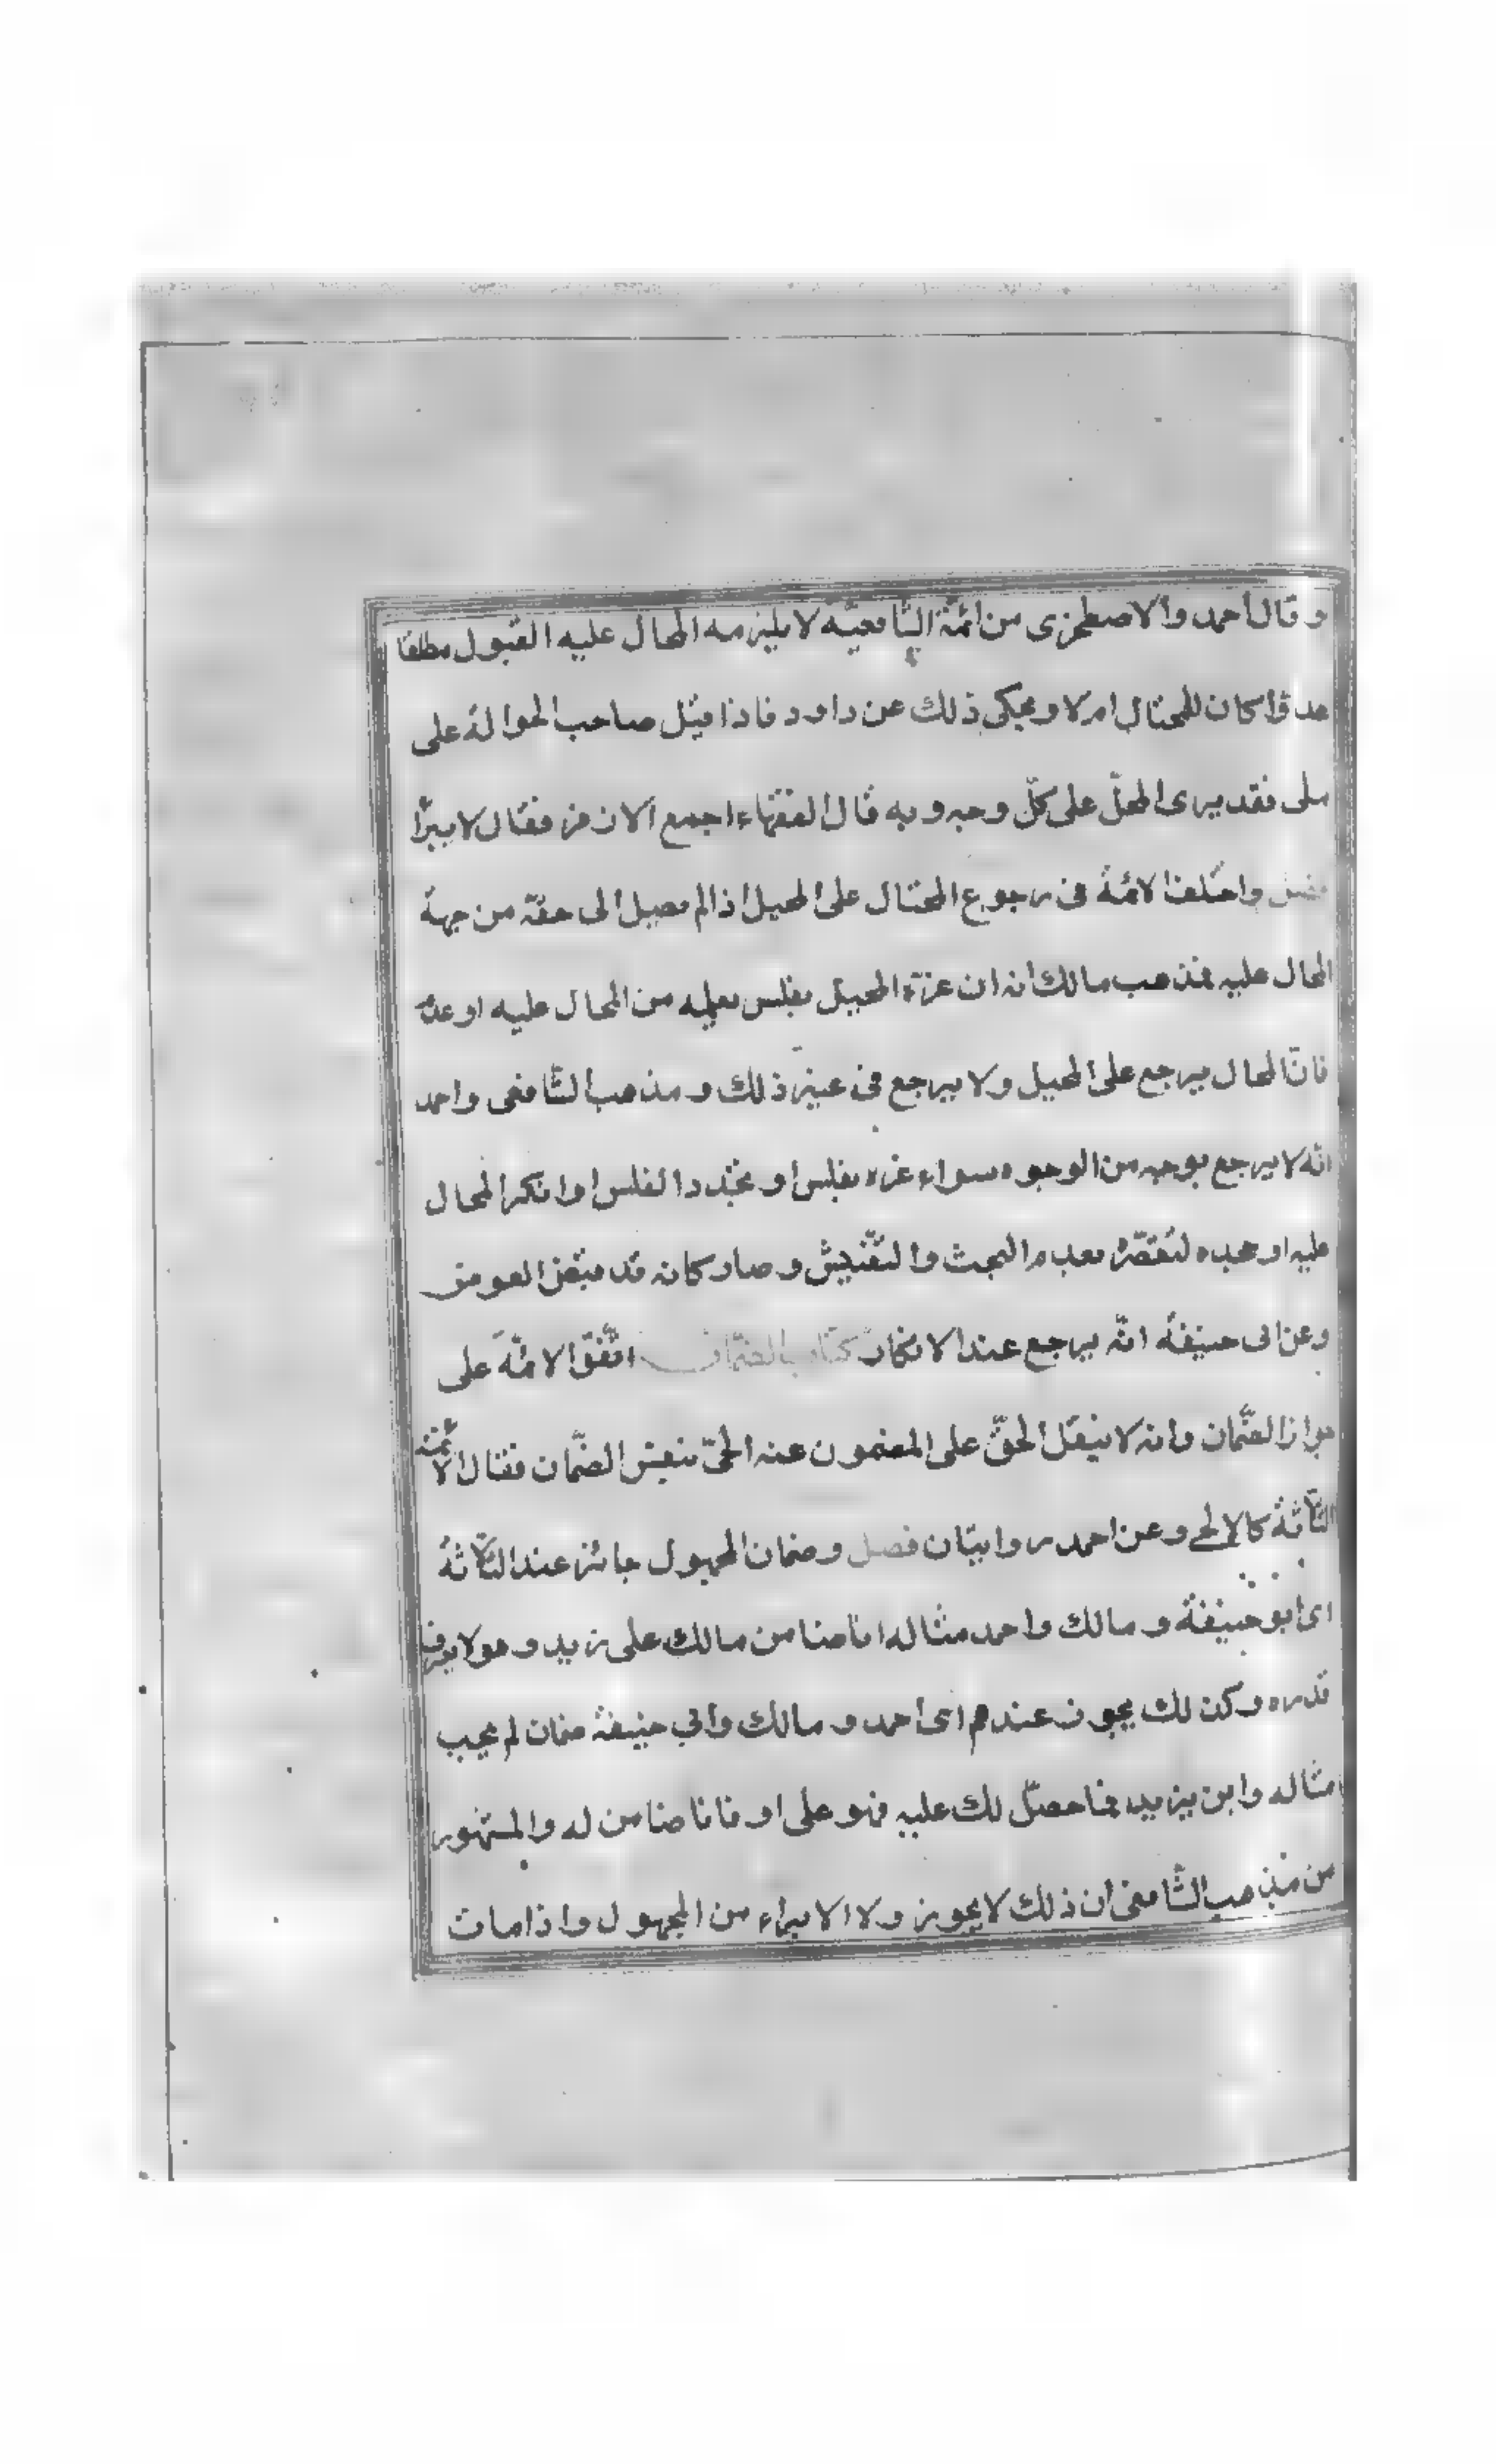 وقال أحمد والاصطخري من ائمّة الشّافعيّة لا يلزمه المحال عليه القبول مطلقا
عدوّا كان للمحتال ام لا ويحكى ذلك عن داود فاذا قبل صاحب الحوالة على
ملى فقد برى المحلّ على كلّ وجه وبه قال الفقهاء اجمع الا زفر فقال لا يبرأ
فصل واختلف الائمة في رجوع المحتال على المحيل اذا لم يصل الى حقّه من جهة
المحال عليه فمذهب مالك انه ان غرّه المحيل بفلس يعلمه من المحال عليه او عدّ
فانّ المحال يرجع على المحيل ولا يرجع في غير ذلك ومذهب الشّافعى واحمد
انّه لا يرجع بوجه من الوجوه سواء غره بفلس او تجدّد الفلس او انكر المحال
عليه او جحده لتقصّره بعدم البحث والتّفتيش وصار كانه قد قبض العوض
وعن ابى حنيفة انّه يرجع عند الانكار كتاب الضّمان اتّفق الائمّة على
جواز الضّمان وانه لا ينقل الحقّ على المضمون عنه الحىّ بنفس الضّمان فقال الائمّة
الثّلاثة كالاحى وعن احمد روايتان فصل وضمان المجهول جائز عند الثّلاثة
اى ابو حنيفة ومالك واحمد مثاله انا ضامن مالك على زيد وهو لا يعرف
قدره وكذلك يجوز عندهم اى احمد ومالك وابي حنيفة ضمان لم يجب
مثاله وابن يزيد فما حصّل لك عليه فهو على او فانا ضامن له والمشهور
من مذهب الشّافعى ان ذلك لا يجوز ولا الابراء من المجهول واذا مات